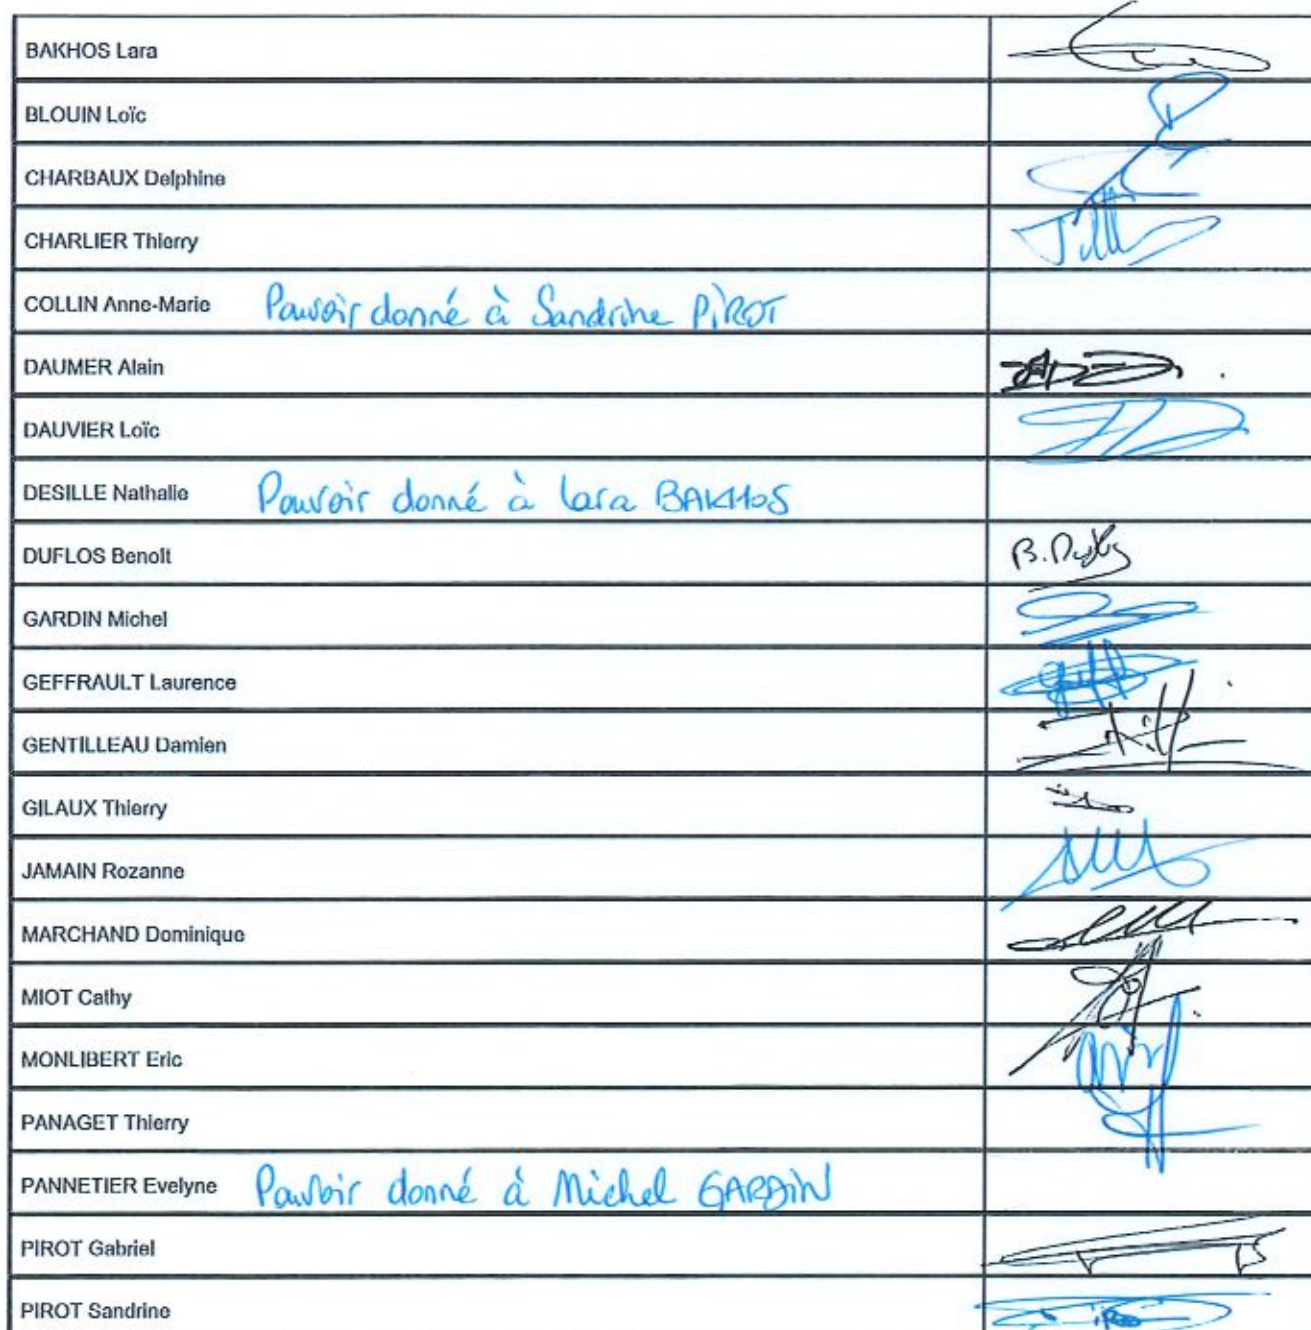 BAKHOS Lara
BLOUIN Loïc
CHARBAUX Delphine
CHARLIER Thierry
COLLIN Anne-Marie Pouvoir donné à Sandrine PIROT
DAUMER Alain
DAUVIER Loïc
DESILLE Nathalie Pouvoir donné à Lara BAKHOS
DUFLOS Benoît B. Duflos
GARDIN Michel
GEFFRAULT Laurence
GENTILLEAU Damien
GILAUX Thierry
JAMAIN Rozanne
MARCHAND Dominique
MIOT Cathy
MONLIBERT Eric
PANAGET Thierry
PANNETIER Evelyne Pouvoir donné à Michel GARDIN
PIROT Gabriel
PIROT Sandrine